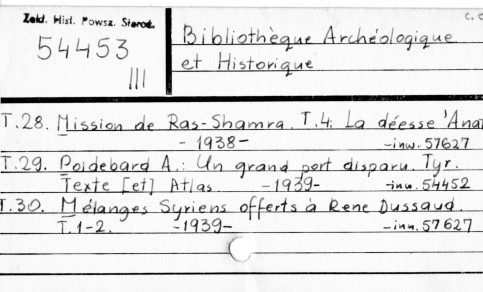 Zakł. Hist. Powsz. Staroż.
54453
III
Bibliothèque Archéologique
et Historique
c. d
T.28. Mission de Ras-Shamra. T.4: La déesse 'Anat
- 1938- -inw. 57627
T.29. Poidebard A.: Un grand port disparu. Tyr.
Texte [et] Atlas -1939- -inw. 54452
T.30. Mélanges Syriens offerts à Rene Dussaud.
T.1-2. -1939- -inw. 57627